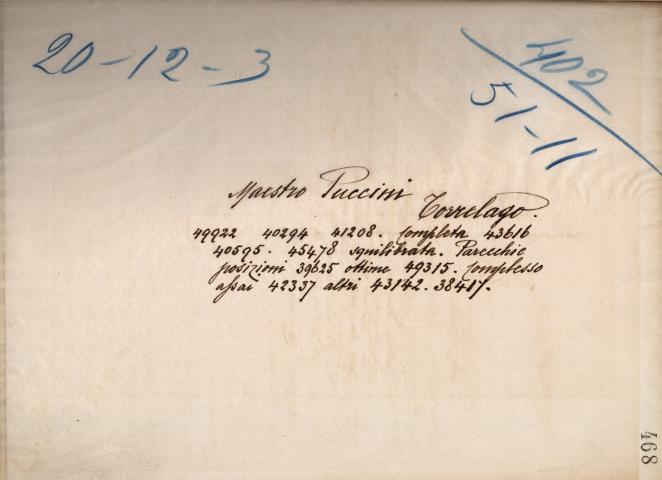 20-12-3
402
51-11
Maestro Puccini
Torrelago.
49922 40294 41208. completa 43616
40595. 45478 squilibrata. Parecchie
posizioni 39625 ottime 49315. complesso
assai 42337 altri 43142. 38417.
468